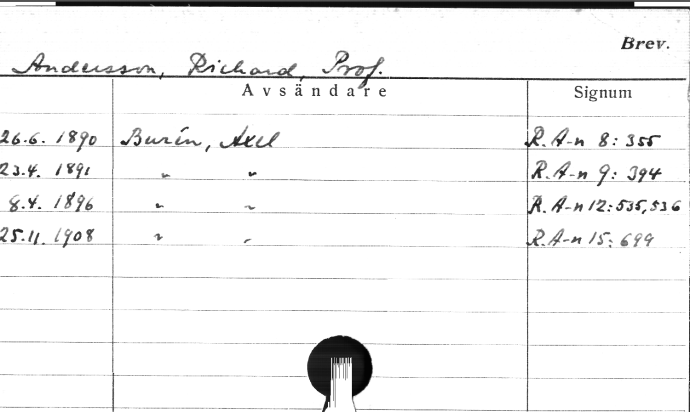 Brev.
Andersson, Richard, Prof.
Avsändare Signum
26.6. 1890 Burén, Axel R.A-n 8: 355
23.4. 1891 " " R.A-n 9: 394
8.4. 1896 " " R.A-n 12: 535, 536
25.11. 1908 " " R.A-n 15: 699